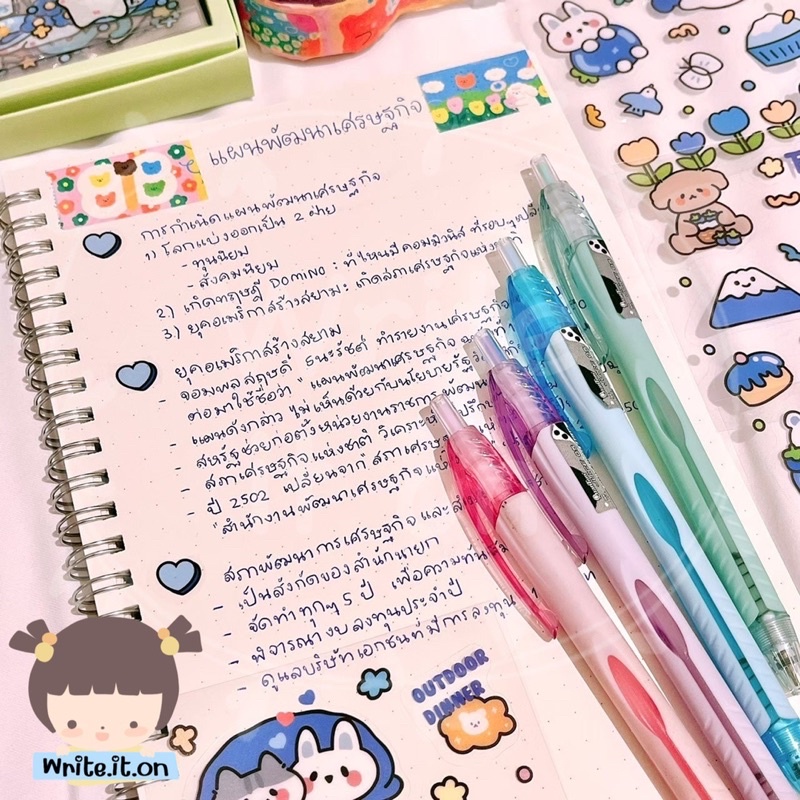 แผนพัฒนาเศรษฐกิจ
การกำเนิดแผนพัฒนาเศรษฐกิจ
1) โลกแบ่งออกเป็น 2 ฝ่าย
- ทุนนิยม
- สังคมนิยม
2) เกิดทฤษฎี DOMINO : ที่ไหนมีคอมมิวนิสต์ ที่รอบๆ
3) ยุคอเมริกาสร้างสยาม : เกิดสภาเศรษฐกิจแห่งชาติ
ยุคอเมริกาสร้างสยาม
- จอมพลสฤษดิ์ ธนะรัชต์ ทำรายงานเศรษฐกิจ
ต่อมาใช้ชื่อว่า "แผนพัฒนาเศรษฐกิจ
- แผนดังกล่าว ไม่เห็นด้วยกับนโยบายรัฐ
- สหรัฐช่วยก่อตั้งหน่วยงานราชการ พัฒนา
- สภาเศรษฐกิจแห่งชาติ วิเคราะห์
- ปี 2502 เปลี่ยนจาก สภาเศรษฐกิจ
"สำนักงานพัฒนาเศรษฐกิจ
สภาพัฒนาการเศรษฐกิจ และ
- เป็นสังกัดของสำนักนายก
- จัดทำทุกๆ 5 ปี เพื่อความทัน
- พิจารณางบลงทุนประจำปี
- ดูแลบริษัทเอกชนที่มีการลงทุน
OUTDOOR
DINNER
Write.it.on